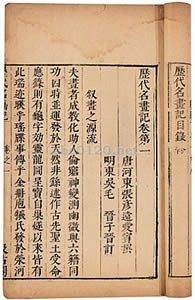 歷代名畫記目錄
歷代名畫記卷第一
唐河東張彥遠愛賓撰
明東吳毛 晉子晉訂
敘畫之源流
夫畫者成教化助人倫窮神變測幽微與六籍同
功四時並運發於天然非繇述作古先聖王受命
應籙則有龜字効靈龍圖呈寶自巢燧以來皆有
此瑞迹暎乎瑤牒事傳乎金冊庖犧氏發於滎河